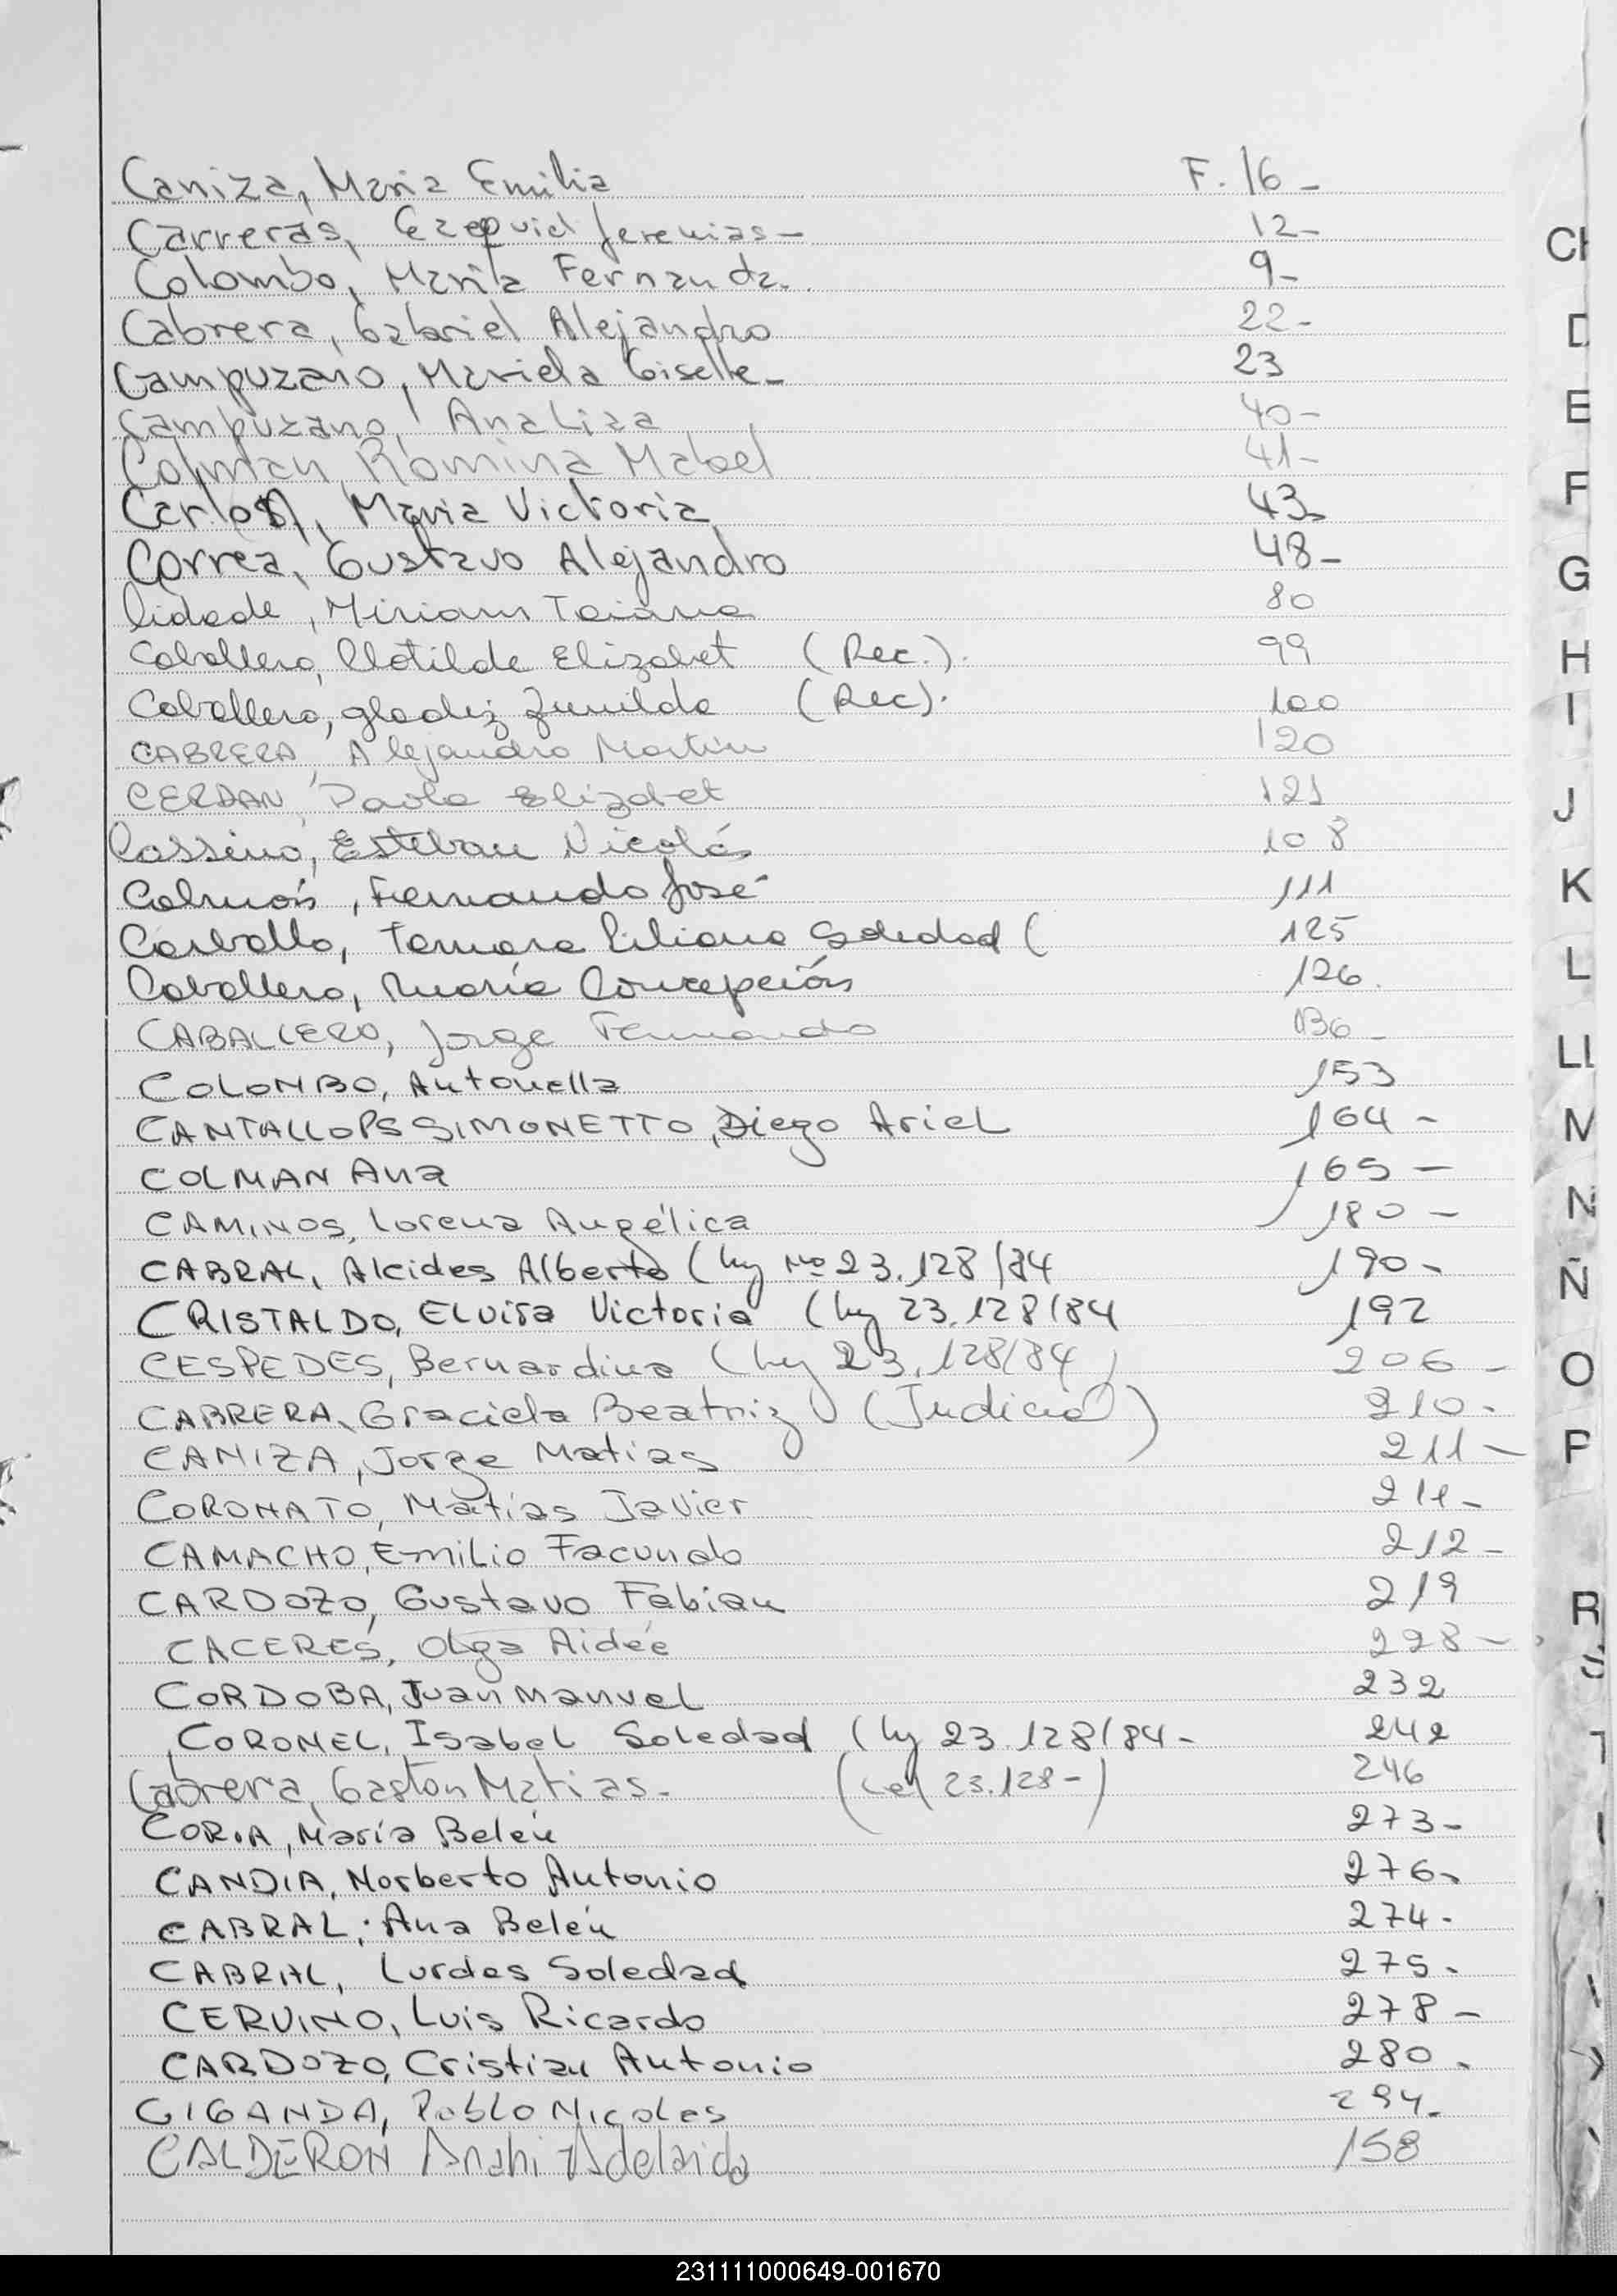 Caniza, Maria Emilia F. 16 -
Carreras, Ezequiel Jeremias - 12 -
Colombo, María Fernanda. 9 -
Cabrera, Gabriel Alejandro 22 -
Campuzano, Mariela Giselle - 23
Campuzano, Analiza 40 -
Colman Romina Mabel 41 -
Maria Victoria 43 -
Correa, Gustavo Alejandro 48 -
Cidade, Miriam Taiana 80
Caballero, Clotilde Elizabet (Rec.). 99
Caballero, Gladiz Zunilda (Rec). 100
CABRERA, Alejandro Martin 120
CERDAN, Paola Elizabet 121
Cassino, Esteban Nicolás 108
Fernando José 111
Carballo, Tamara Liliana Soledad ( 125
Caballero, María Concepción 126.
CABALLERO, Jorge Fernando 136 -
COLOMBO, Antonella 153
CANTALLOPS SIMONETTO, Diego Ariel 164 -
COLMAN Ana 165 -
CAMINOS, Lorena Angélica 180 -
CABRAL, Alcides Alberto (Ley Nº 23.128/84 190 -
CRISTALDO, Eluisa Victoria (Ley 23.128/84 192
CESPEDES, Bernardina (Ley 23.128/84) 206 -
CABRERA, Graciela Beatriz (Judicial) 210 -
CANIZA, Jorge Matias 211 -
CORONATO, Matías Javier 214 -
CAMACHO, Emilio Facundo 212 -
CARDOZO, Gustavo Fabian 219
CACERES, Olga Aidée 228 -
CORDOBA, Juan Manuel 232
CORONEL, Isabel Soledad (Ley 23.128/84 - 242
Cabrera, Gastón Matias. (Ley 23.128-) 246
CORIA, María Belén 273 -
CANDIA, Norberto Antonio 276 -
CABRAL, Ana Belén 274 -
CABRAL, Lurdes Soledad 275 -
CERVINO, Luis Ricardo 278 -
CARDOZO, Cristian Antonio 280 .
CIGANDA, Pablo Nicolas 294 -
CALDERON Anahi Adelaida 158
CH
D
E
F
G
H
I
J
K
L
LL
M
N
Ñ
O
P
R
S
T
231111000649-001670